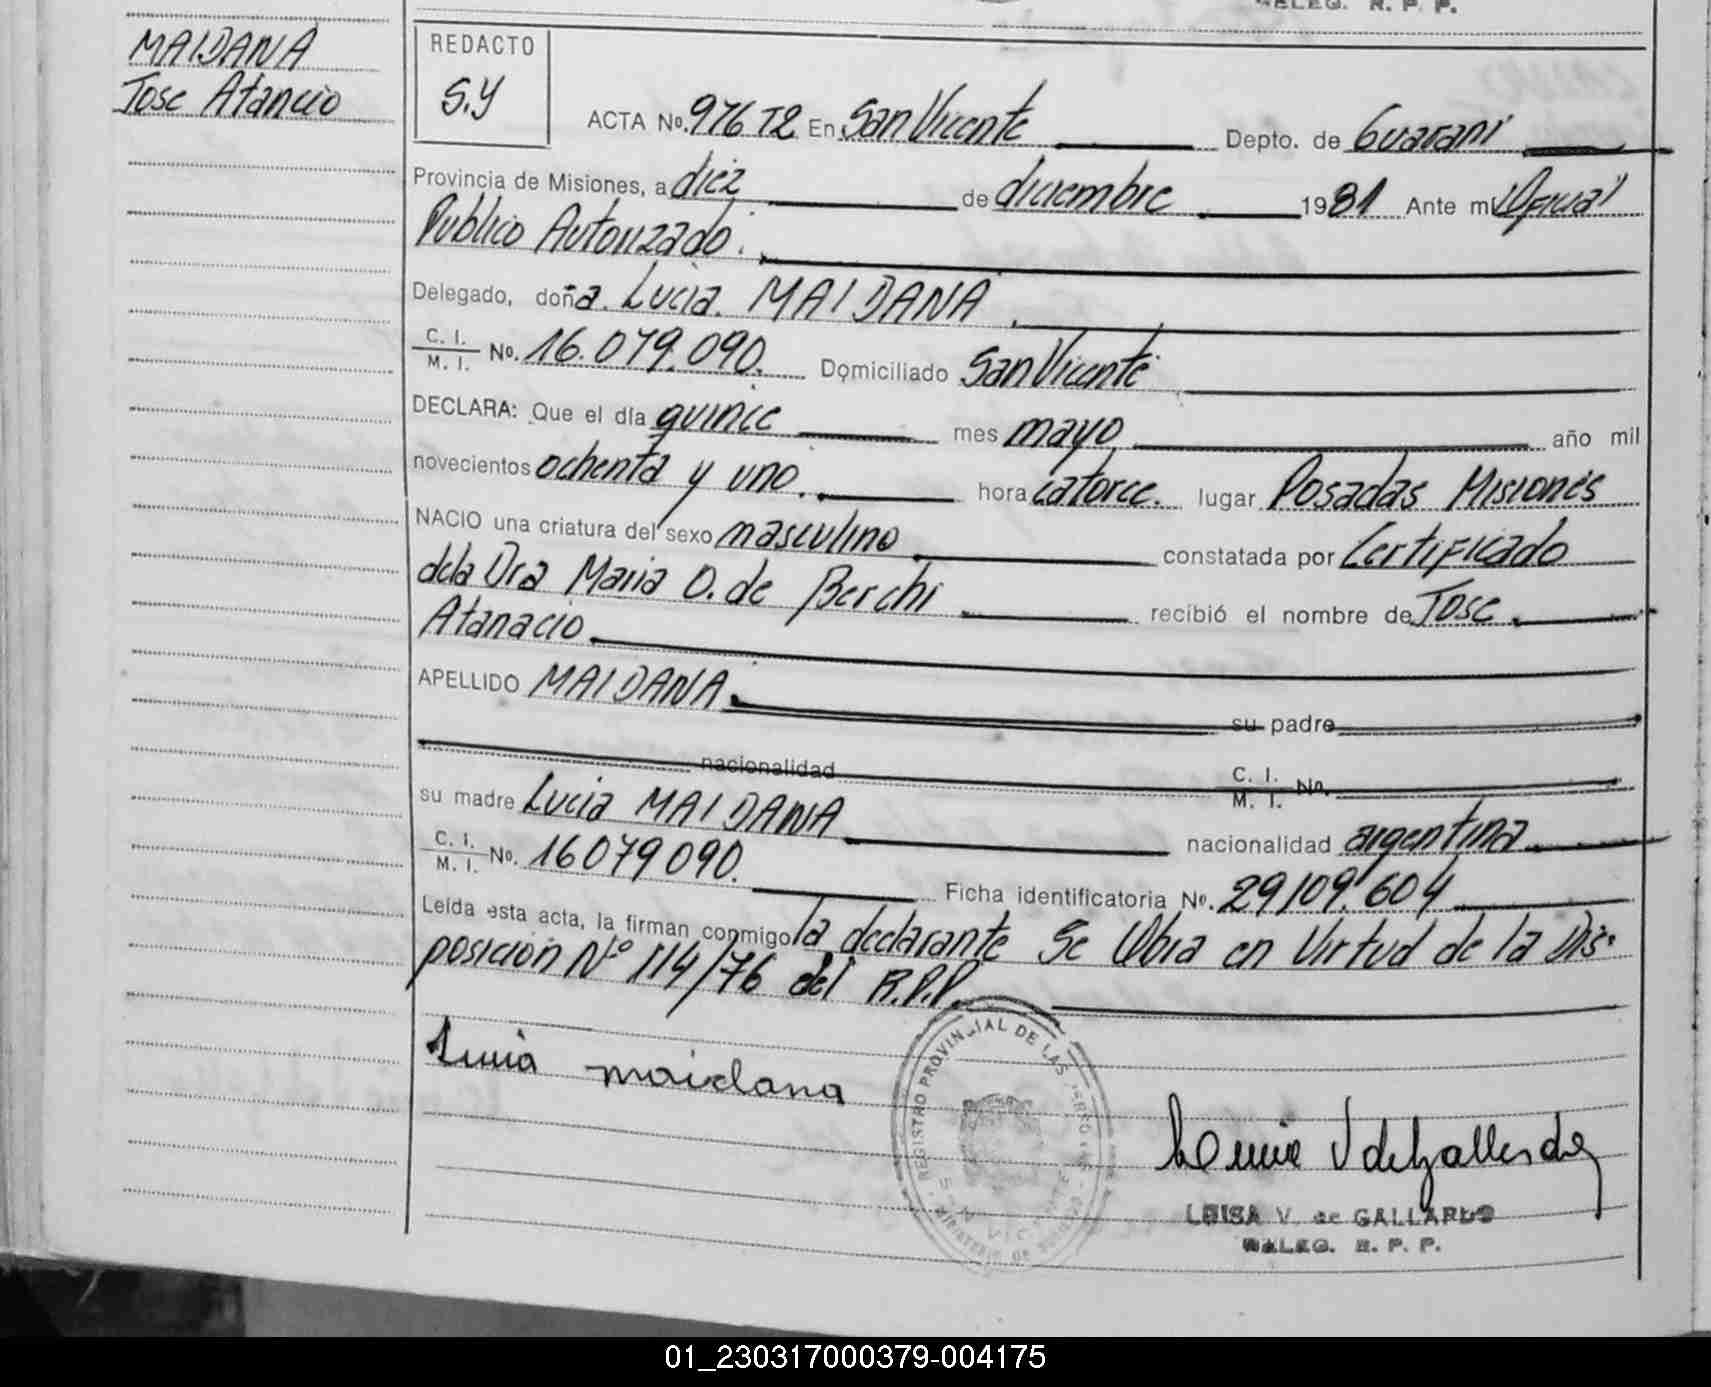 DELEG. R. P. P.
MAIDANA
Jose Atanacio
REDACTO
S.Y
ACTA Nº. 976 T2 En San Vicente Depto. de Guarani
Provincia de Misiones, a diez de diciembre 1981 Ante mi Oficial
Publico Autorizado.
Delegado, doña. Lucia. MAIDANA
C. I. / M. I. Nº. 16.079.090. Domiciliado San Vicente
DECLARA: Que el día quince mes mayo año mil
novecientos ochenta y uno. hora catorce. lugar Posadas Misiones
NACIO una criatura del sexo masculino constatada por Certificado
dela Dra Maria O. de Berchi recibió el nombre de Jose
Atanacio
APELLIDO MAIDANA su padre
nacionalidad C. I. / M. I. Nº.
su madre Lucia MAIDANA nacionalidad argentina
C. I. / M. I. Nº. 16079090. Ficha identificatoria Nº. 29/09.604
Leída esta acta, la firman conmigo la declarante Se Obra en Virtud de la Dis-
posición Nº 114/76 del R.P.P.
Lucia maidana
REGISTRO PROVINCIAL DE LAS PERSONAS
SAN VICENTE
MINISTERIO DE GOBIERNO
LUISA V. de GALLARDO
DELEG. R. P. P.
01_230317000379-004175